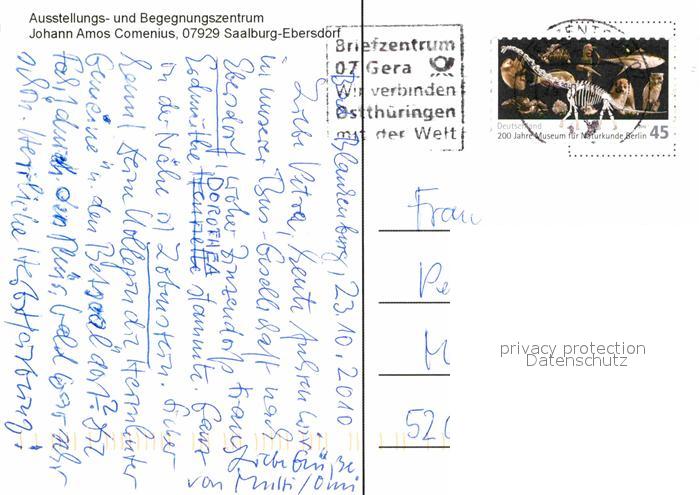 Ausstellungs- und Begegnungszentrum
Johann Amos Comenius, 07929 Saalburg-Ebersdorf
Briefzentrum
07 Gera
Wir verbinden
Ostthüringen
mit der Welt
Deutschland
200 Jahre Museum für Naturkunde Berlin 45
Blankenburg, 23.10.2010
Liebe Petra, heute fuhren wir
in unserer Bus-Gesellschaft nach
Ebersdorf, woher Zinzendorfs Frau
Erdmuthe DOROTHEA stammte. Ganz
in der Nähe ist Lobenstein. Sicher
kennt Deine Kollegin die Herrnhuter
Gemeine u. den Betsaal dort?
durch den
schön. Herzliche
Liebe Grüße
von Mutti / Omi
Frau
Pe
M
520
privacy protection
Datenschutz